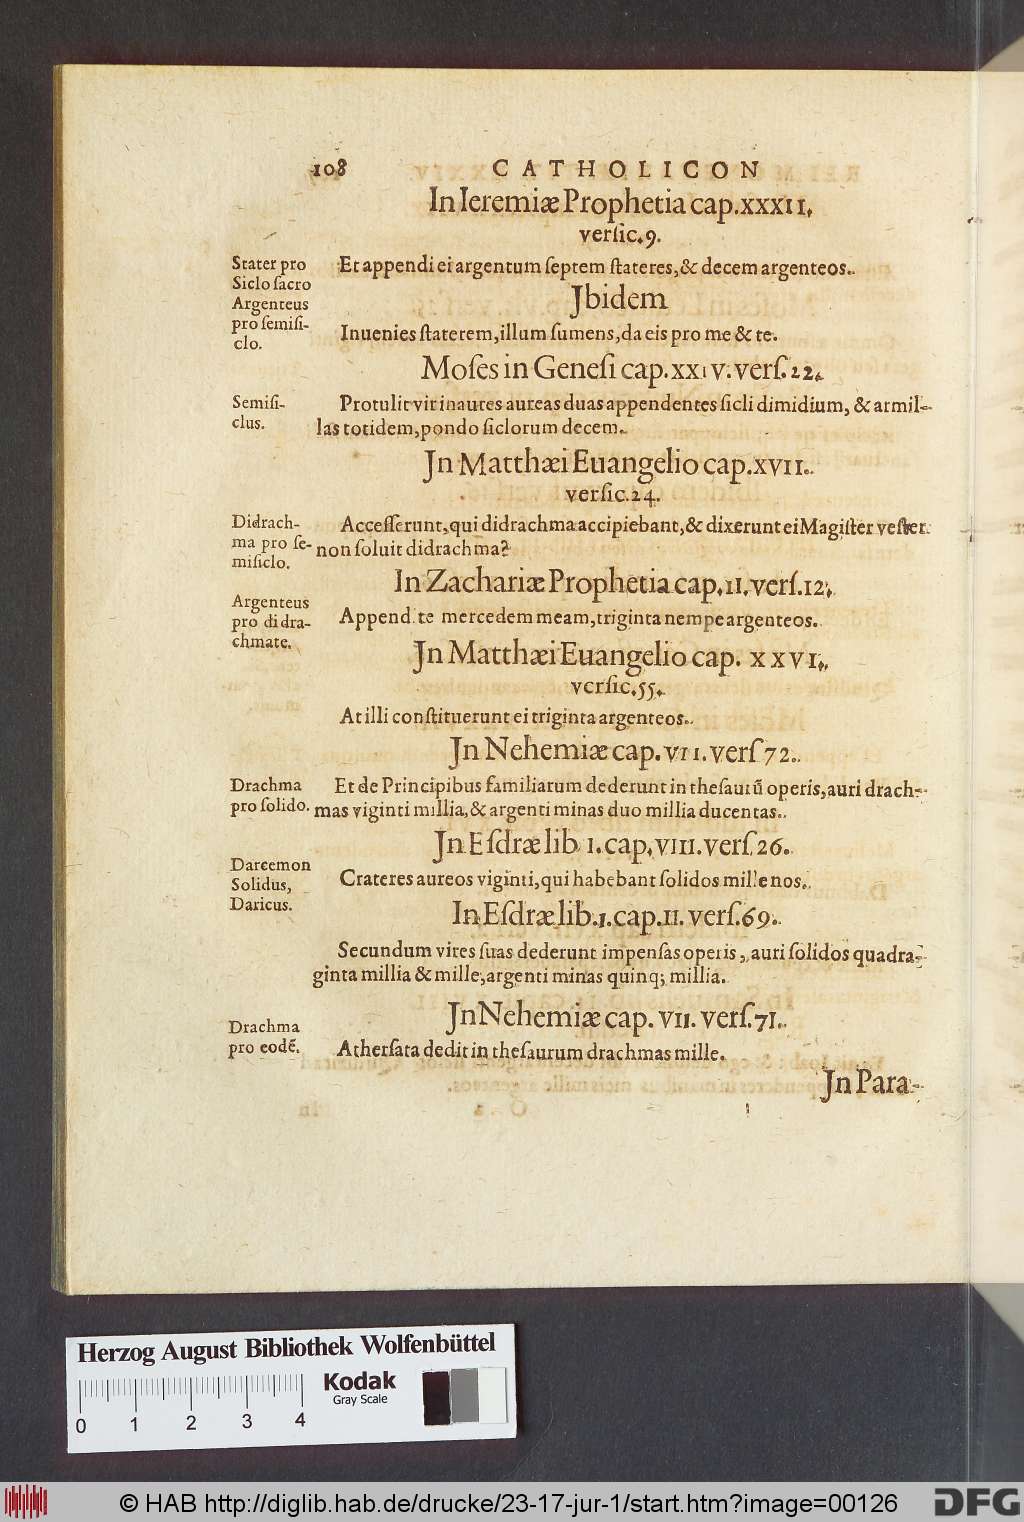 108 CATHOLICON
In Ieremiæ Prophetia cap.xxxII.
verſic.9.
Stater pro
Siclo ſacro
Argenteus
pro ſemiſi-
clo.
Et appendi ei argentum ſeptem ſtateres, & decem argenteos.
Jbidem
Inuenies ſtaterem, illum ſumens, da eis pro me & te.
Moſes in Geneſi cap.xxiv. verſ.22.
Semiſi-
clus.
Protulit vir inaures aureas duas appendentes ſicli dimidium, & armil-
las totidem, pondo ſiclorum decem.
Jn Matthæi Euangelio cap.xvII.
verſic.24.
Didrach-
ma pro ſe-
miſiclo.
Acceſſerunt, qui didrachma accipiebant, & dixerunt ei Magiſter veſter
non ſoluit didrachma?
In Zachariæ Prophetia cap.II. verſ.12.
Argenteus
pro didra-
chmate.
Append te mercedem meam, triginta nempe argenteos.
Jn Matthæi Euangelio cap. XXVI.
verſic.55.
At illi conſtituerunt ei triginta argenteos.
Jn Nehemiæ cap. VII. verſ 72.
Drachma
pro ſolido.
Et de Principibus familiarum dederunt in theſaurũ operis, auri drach-
mas viginti millia, & argenti minas duo millia ducentas.
Jn Eſdræ lib I. cap. VIII. verſ 26.
Darcemon
Solidus,
Daricus.
Crateres aureos viginti, qui habebant ſolidos millenos.
In Eſdræ lib.1.cap.II. verſ.69.
Secundum vires ſuas dederunt impenſas operis, auri ſolidos quadra-
ginta millia & mille, argenti minas quinq; millia.
Jn Nehemiæ cap. VII. verſ.71.
Drachma
pro eodẽ.
Atherſata dedit in theſaurum drachmas mille.
Jn Para-
Herzog August Bibliothek Wolfenbüttel
Kodak
Gray Scale
0 1 2 3 4
© HAB http://diglib.hab.de/drucke/23-17-jur-1/start.htm?image=00126
DFG